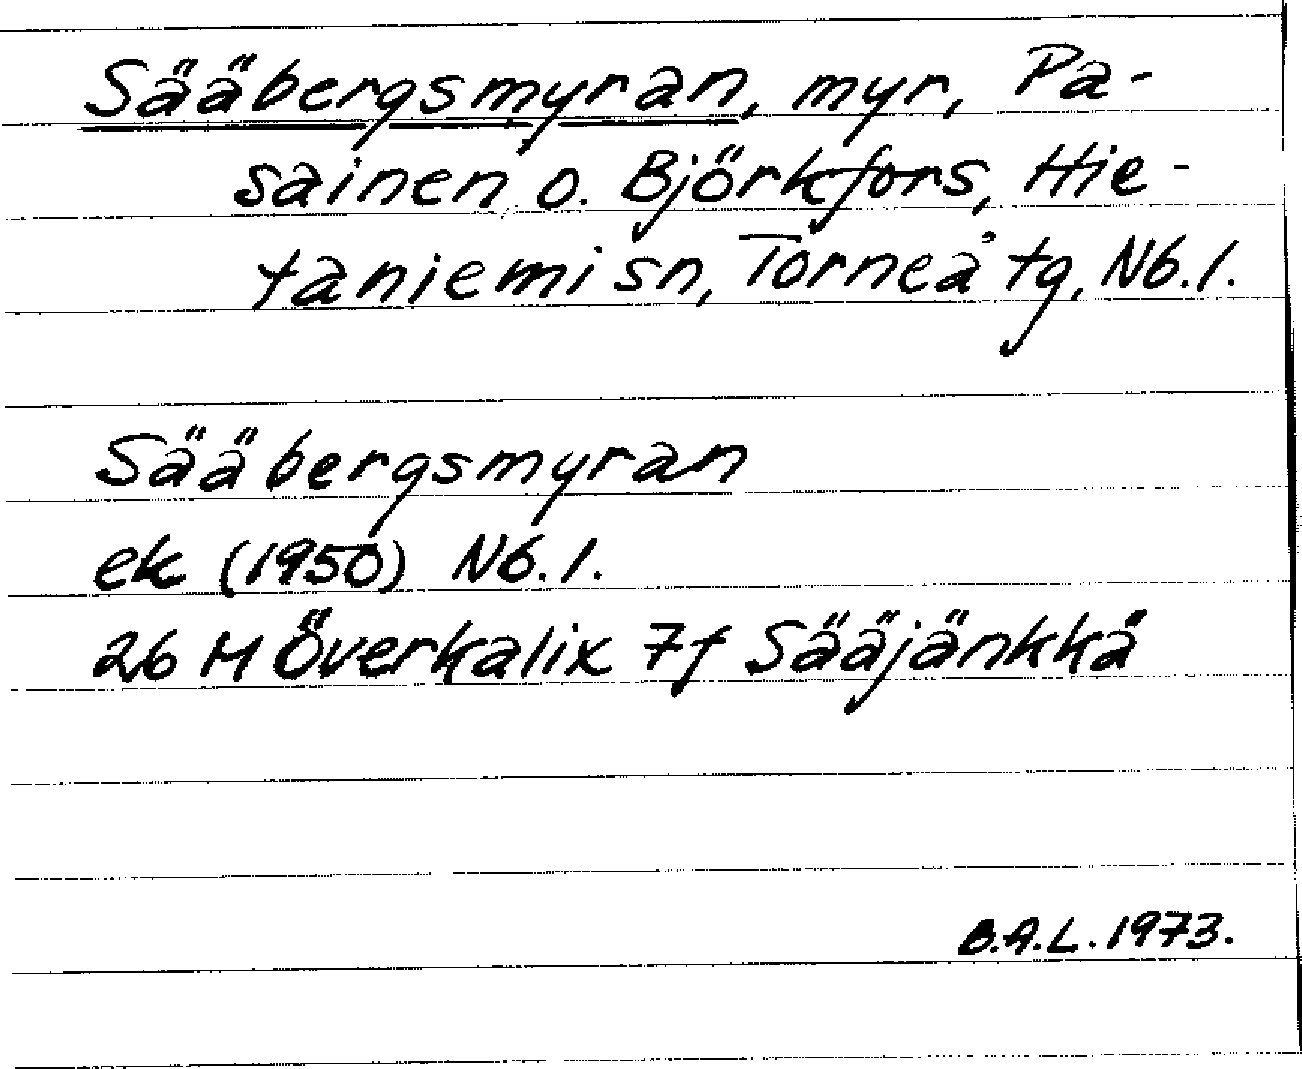 Sääbergsmyran, myr, Pa-
sainen o. Björkfors, Hie-
taniemi sn, Torneå tg, Nb. l.
Sääbergsmyran
ek (1950) Nb. l.
26 M Överkalix 7f Sääjänkkä
B.A.L. 1973.